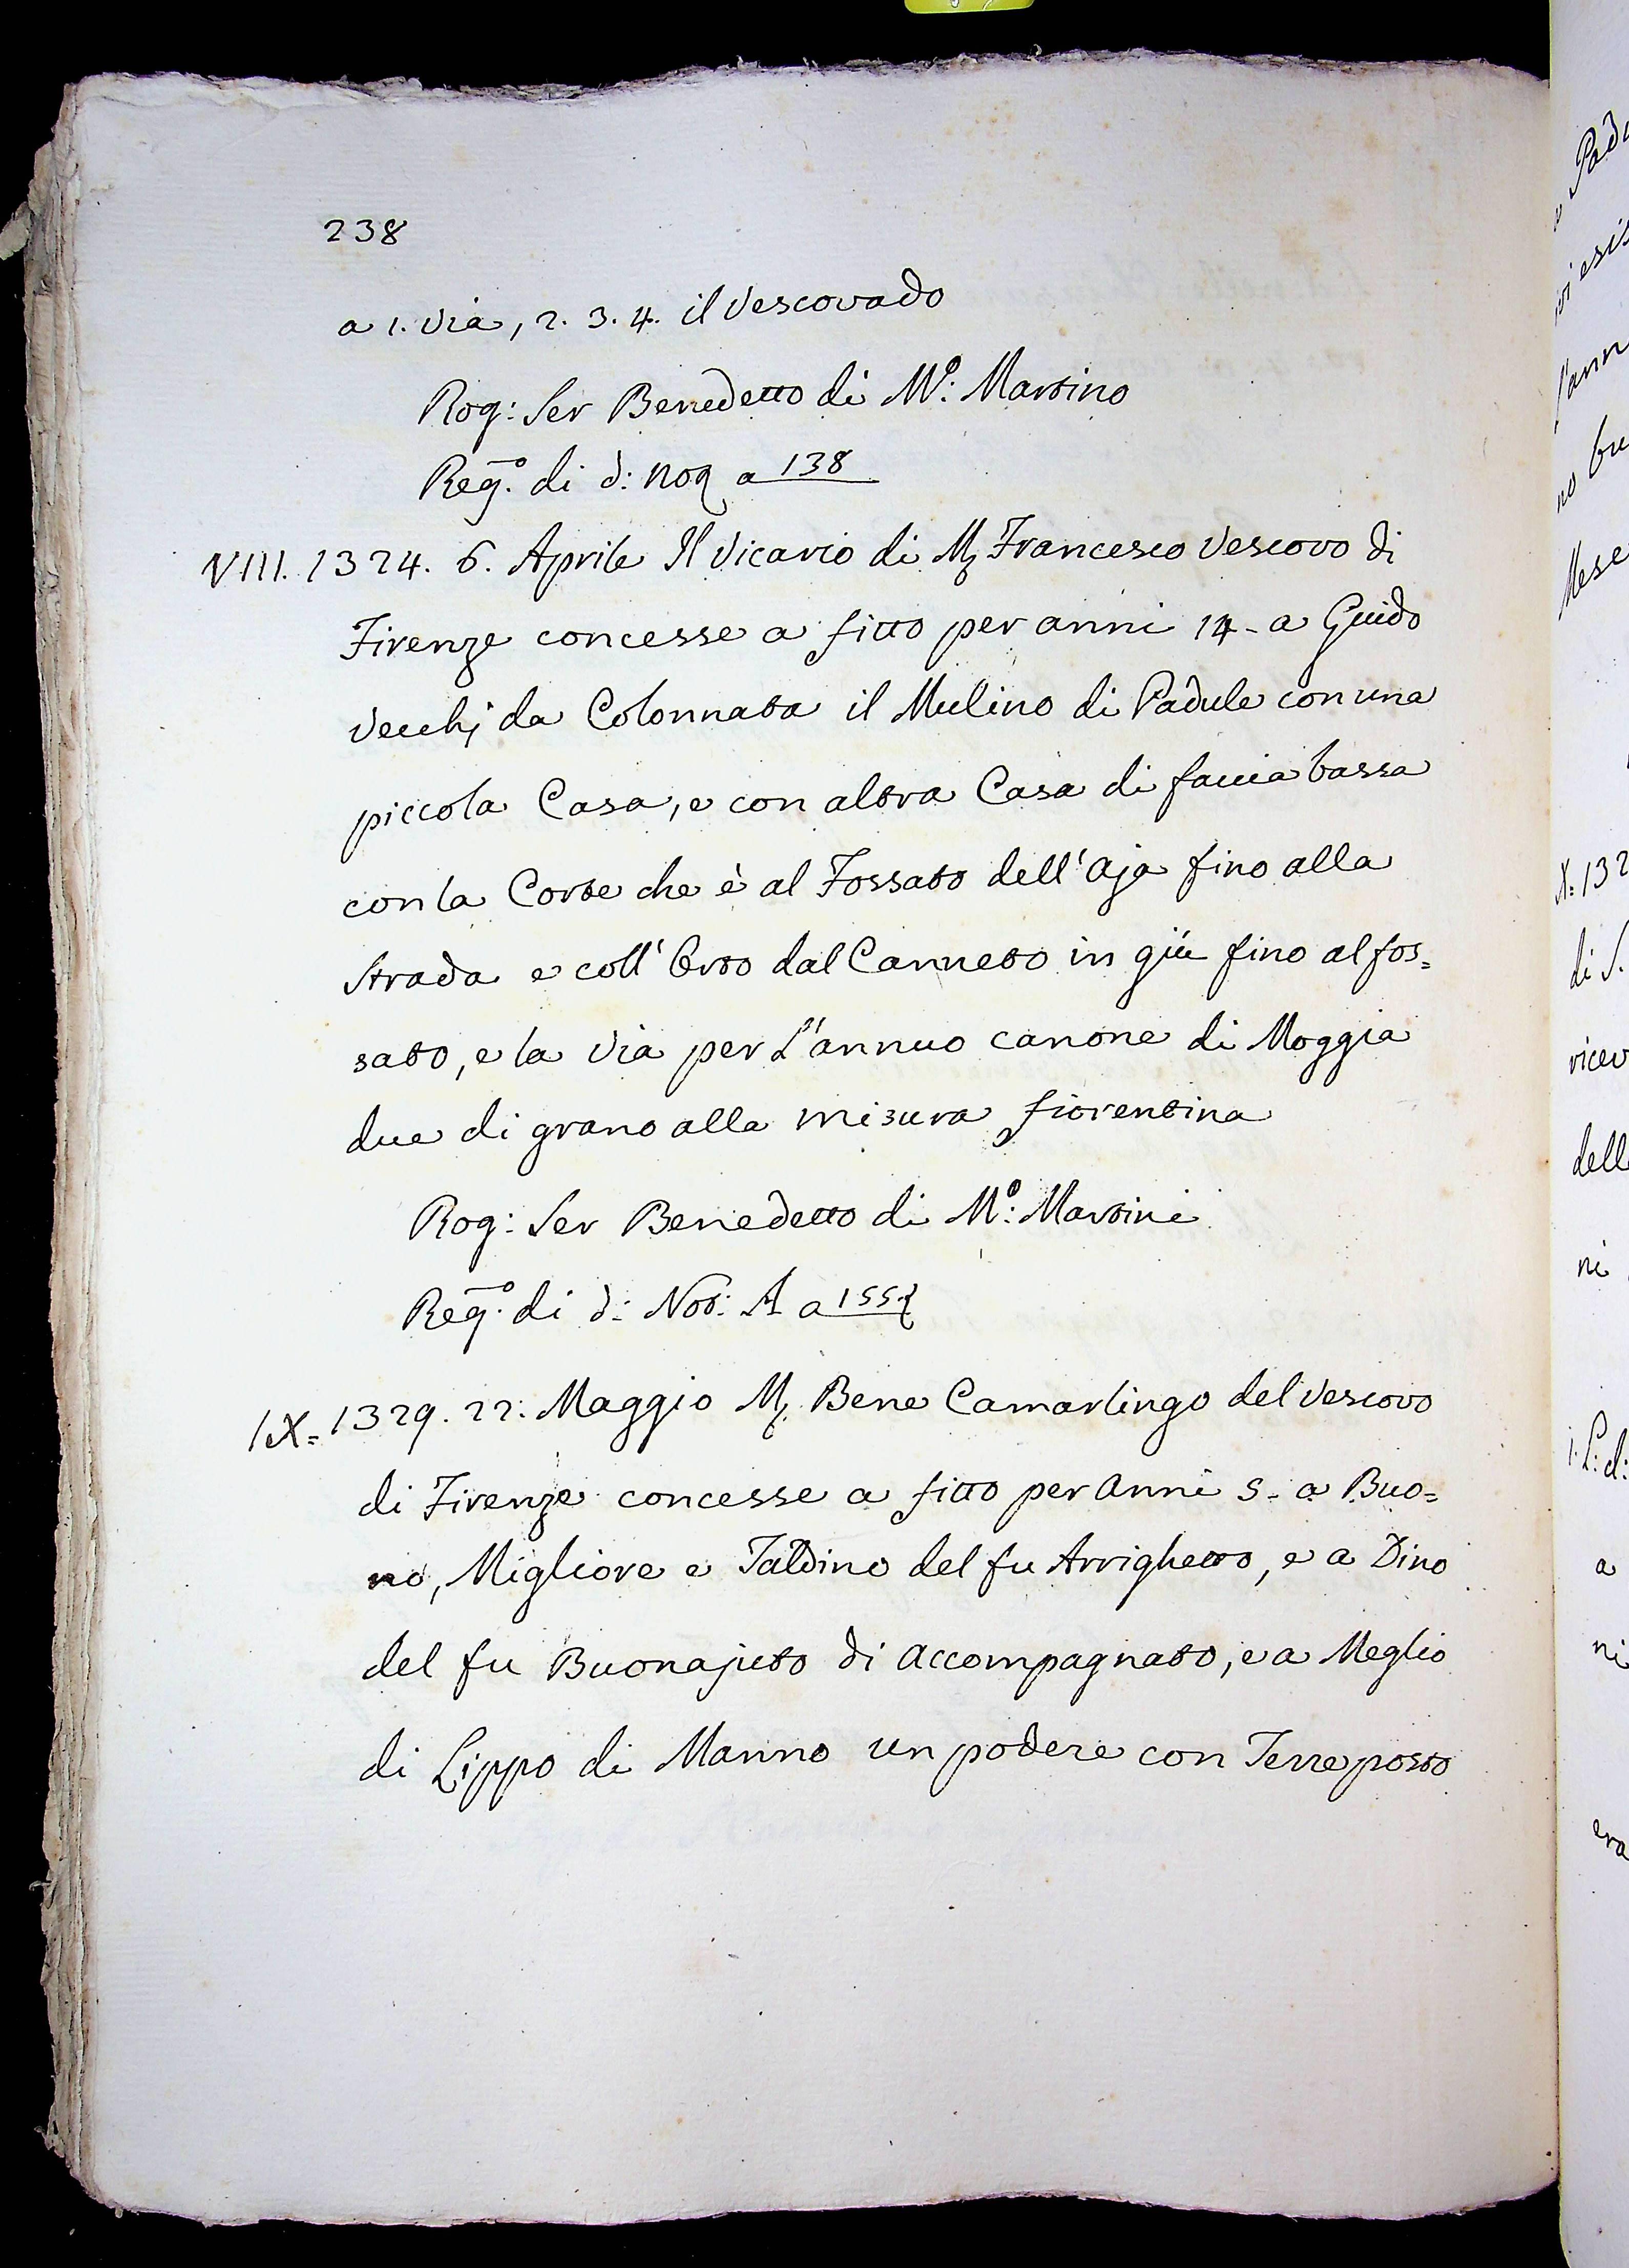 238
a 1. via, 2. 3. 4. il Vescovado
Rog: Ser Benedetto di M.º: Martino
Reg.º di d: not a 138
VIII. 1324. 6. Aprile Il Vicario di M. Francesco Vescovo di
Firenze concesse a fitto per anni 14- a Guido
Vecchj da Colonnata il Mulino di Padule con una
piccola Casa, e con altra Casa di faccia bassa
con la Corte che è al Fossato dell' Aja fino alla
Strada e coll' Orto dal Canneto in giù fino al fos=
sato, e la Via per L'annuo canone di Moggia
due di grano alla misura fiorentina
Rog: Ser Benedetto di M.º: Martini
Reg.º di d: Not: A a 155.
IX= 1329. 22. Maggio M. Bene Camarlingo del Vescovo
di Firenze concesse a fitto per Anni 5- a Buo=
no, Migliore e Taldino del fu Arrighetto, e a Dino
del fu Buonajuto di Accompagnato, e a Meglio
di Lippo di Manno un podere con Terre posto
X= 132
di S.
ricev
dell
ni
a
ni